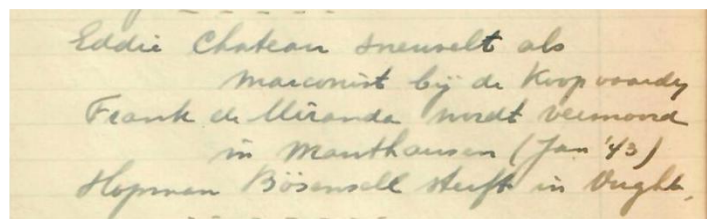 Eddie Chateau sneuvelt als
marconist bij de Koopvaardy
Frank de Miranda wordt vermoord
in Mauthausen (Jan '43)
Hopman Bösensell sterft in Vught.